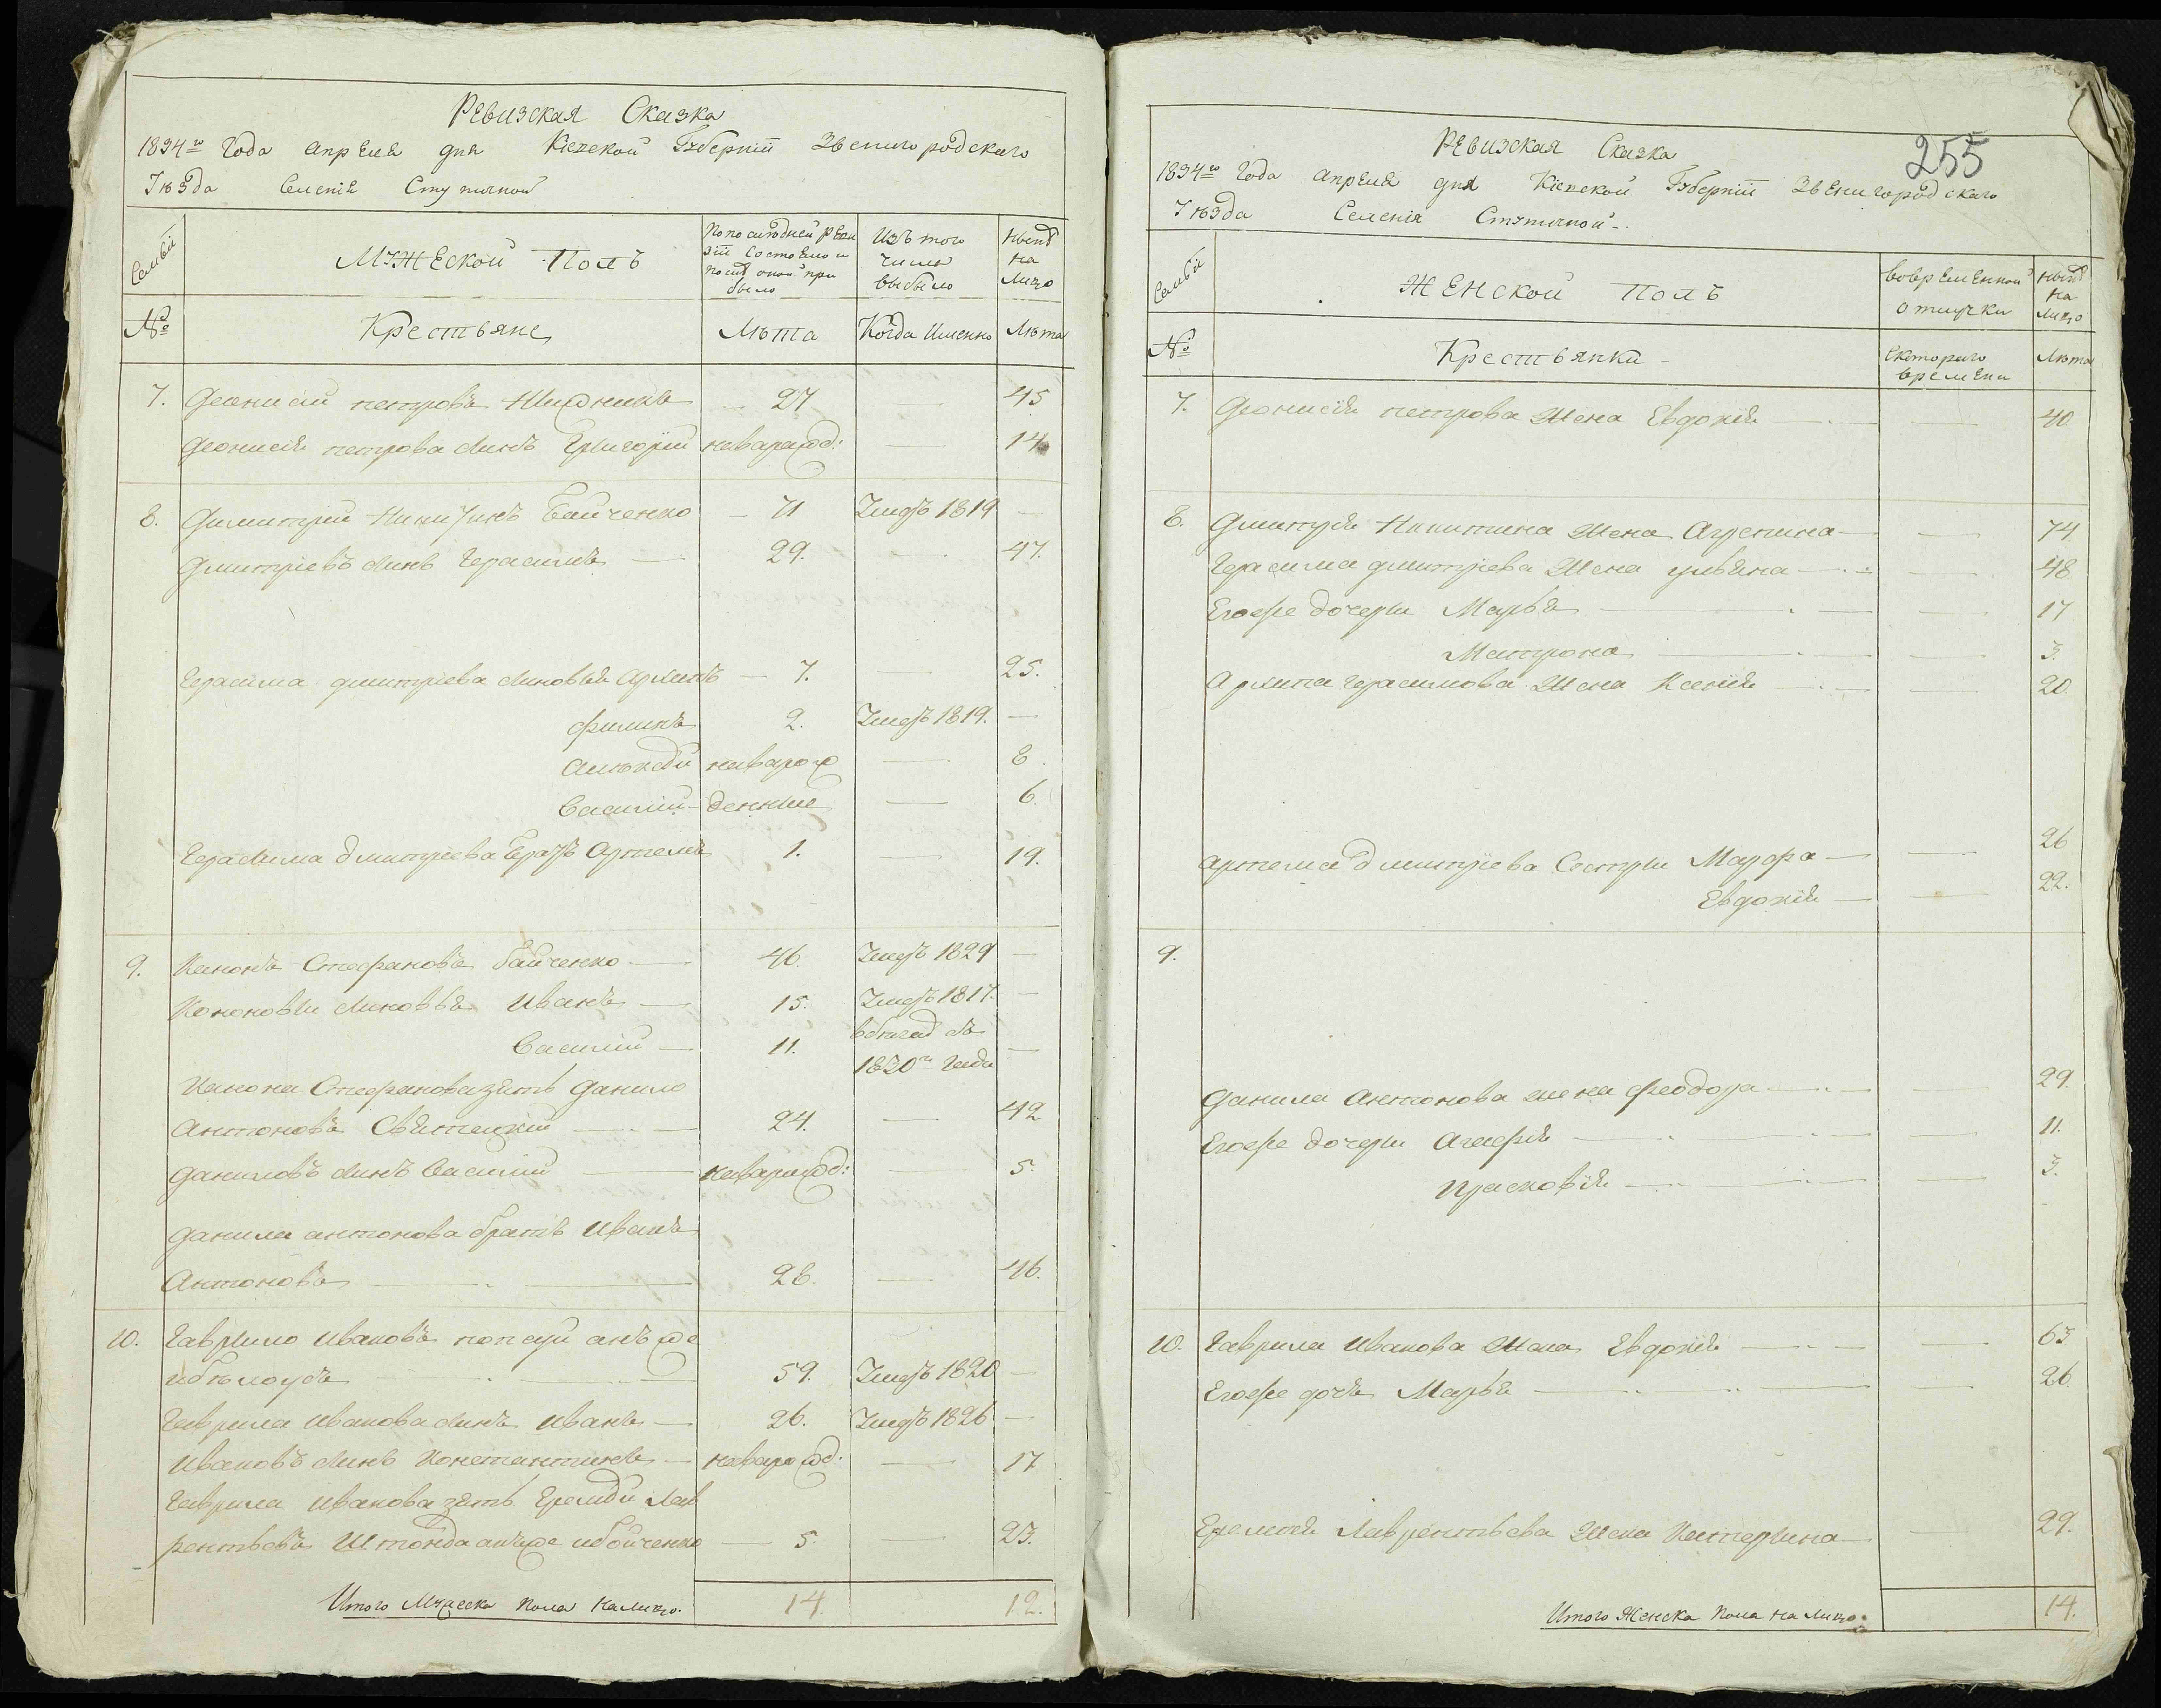 Ревизская Сказка
1834го Года апреля дня Кіевской Губерніи Звенигородского
Уѣзда Селенія Ступичной
Семьи
Мужеской Полъ
По последней реви
зіи состояло и
после оной при
было
Изъ того
числа
выбыло
Нынѣ
на
Лицо
№
Крестьяне
Лѣта
Когда Именно
Лѣта
7. Деонисій петровъ 27 — 45
Деонисія петрова синъ Григорій новарожд: — 14
8. Димитрій Никитинъ Бойченко 71 Умеръ 1819 —
Дмитріевъ синъ Герасимъ — 29. — 47.
Герасима дмитріева синовья 7. — 25.
филипъ 2. Умеръ 1819. —
Алексѣй новарож — 8.
Василій денние — 6.
Герасима Дмитріева Братъ Артемъ 1. — 19.
9. Кононъ Стефановъ Бойченко — 46. Умеръ 1829 —
Кононовы синовья Иванъ — 15. Умеръ 1817. —
Василій — 11. съ —
1830го Года
Конона Стефанова зять Данило
Антоновъ — 24. — 42
Даниловъ синъ Василій — новарожд: — 5.
Данила антонова братъ Иванъ
Антоновъ — 28. — 46.
10. Гаврило Ивановъ
59. Умеръ 1820 —
Гаврила Иванова синъ Иванъ — 26. Умеръ 1826 —
Ивановъ синъ Константинъ — новарожд: — 17
Гаврила Иванова зять Еремѣй Лав
рентьевъ — 5. — 23.
Итого Мужеска пола налицо. 14 12.
255
Ревизская Сказка
1834го Года апреля дня Кіевской Губерніи Звенигородскаго
Уѣзда Селенія Ступичной
Семьи
Женской Полъ
вовременной
отлучки
Нынѣ
на
лицо
№
Крестьянки
скотораго
времени
Лѣта
7. Деонисія петрова Жена Евдокія — — 40
8. Дмитрія Никитина Жена Агрепина — — 74
Герасима дмитріева Жена ульяна — — 48
Егоже дочери Марья — — 17
Матрона — — 3.
Герасимова Жена Ксенія — — 20
Артема Дмитріева Сестры Марфа — — 26
Евдокія — — 22.
9.
Данила Антонова жена феодора — — 29.
Егоже дочери Агафія — — 11.
Прасковія — — 3.
10. Гаврила Иванова Жена Евдокія — — 63
Егоже дочь Марья — — 26
Еремѣя Лаврентьева Жена Катерина — — 29.
Итого Женска пола на лицо. 14.